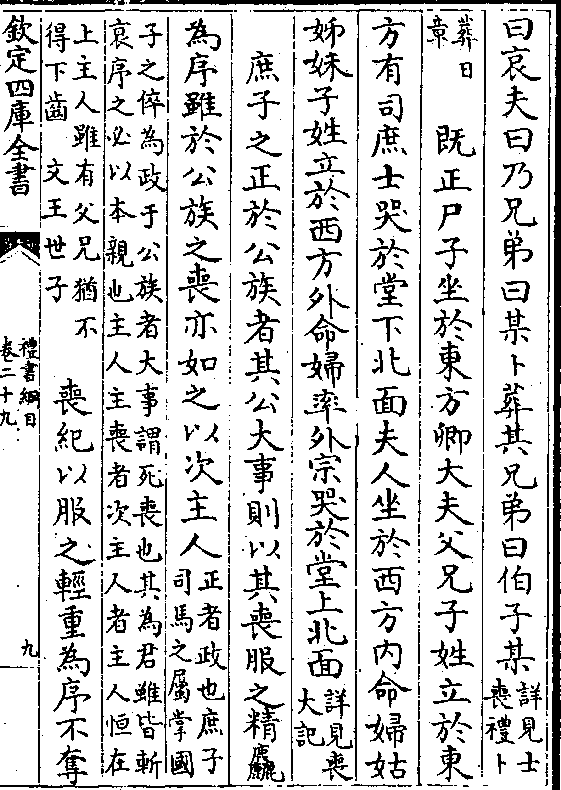 曰哀夫曰乃兄弟曰某卜葬其兄弟曰伯子某詳見士喪禮卜
葬日章　既正尸子坐於東方卿大夫父兄子姓立於東
方有司庶士哭於堂下北面夫人坐於西方内命婦姑
姊妹子姓立於西方外命婦率外宗哭於堂上北面詳見喪大記
庶子之正於公族者其公大事則以其喪服之精麤
為序雖於公族之喪亦如之以次主人正者政也庶子司馬之屬掌國
子之倅為政于公族者大事謂死喪也其為君雖皆斬
衰序之必以本親也主人主喪者次主人者主人恒在
上主人雖有父兄猶不得下齒　文王世子　喪紀以服之輕重為序不奪
欽定四庫全書
禮書綱目
卷二十九
九